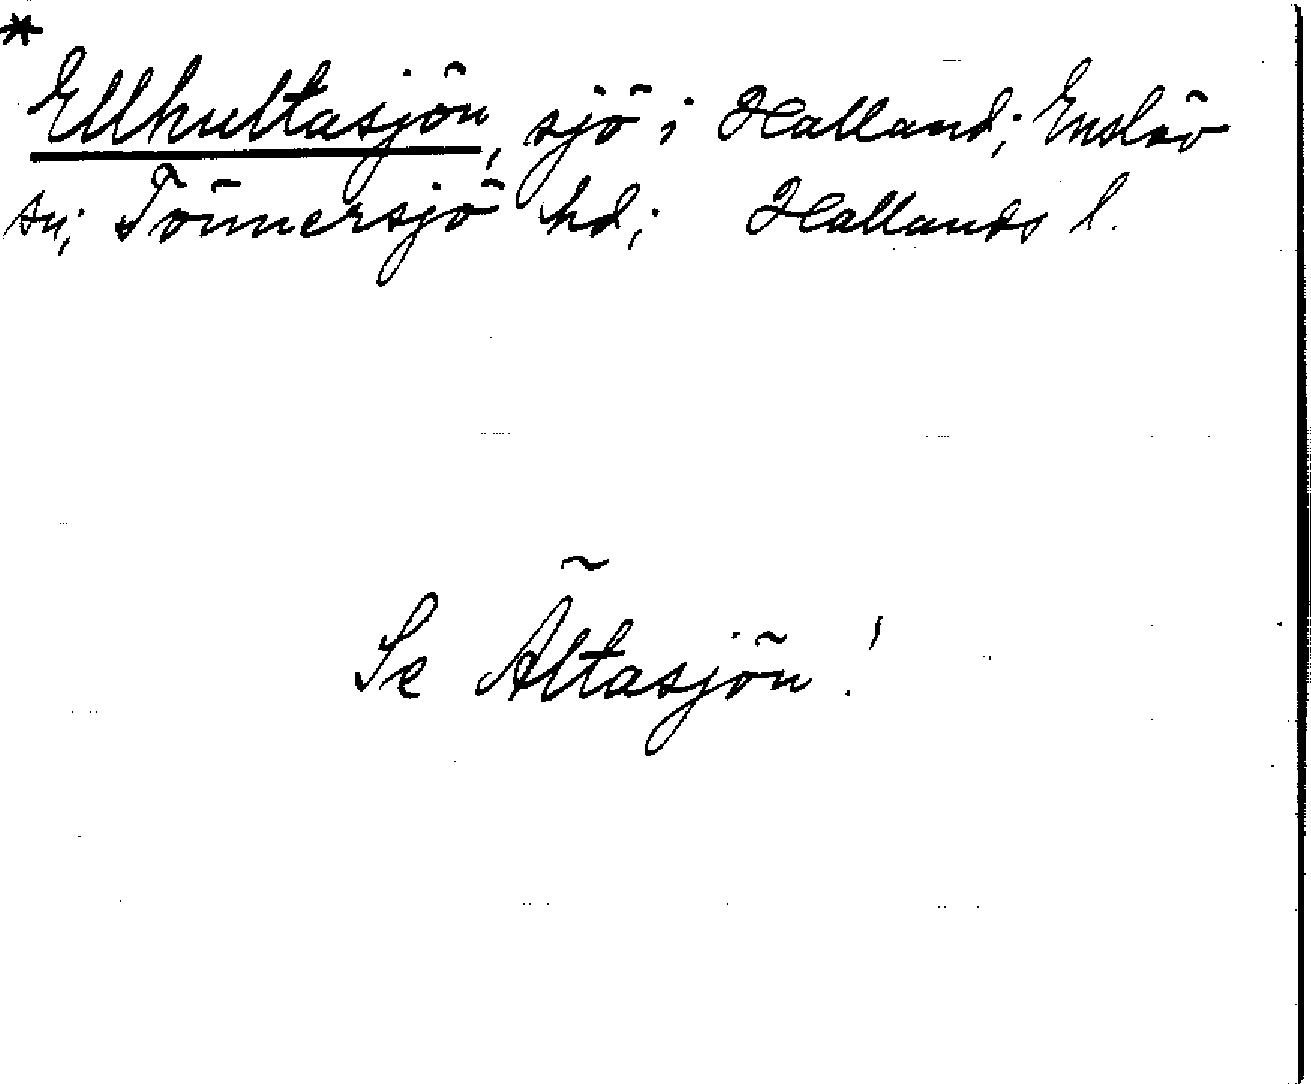 *
Ellhultasjön, sjö i Halland; Enslöv
sn; Tönnersjö hd; Hallands l.
Se Ältasjön!